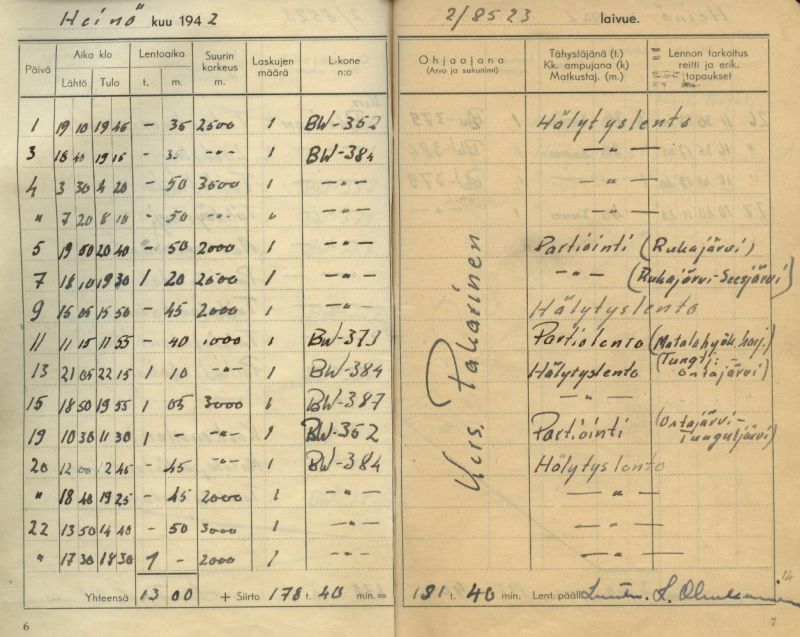 Heinö kuu 1942
2/8523 laivue.
Päivä
Aika klo
Lähtö Tulo
Lentoaika
t. m.
Suurin korkeus m.
Laskujen määrä
L-kone n:o
Ohjaajana
(Arvo ja sukunimi)
Tähystäjänä (t.)
Kk. ampujana (k)
Matkustaj. (m.)
Lennon tarkoitus
reitti ja erik.
tapaukset
1 19 10 19 45 - 35 2500 1 BW-352 Hälytyslento
3 18 40 19 15 - 35 -"- 1 BW-384 -"-
4 3 30 4 20 - 50 3000 1 -"- -"-
" 7 20 8 10 - 50 -"- " -"- -"-
5 19 50 20 40 - 50 2000 1 -"- Partiointi (Rukajärvi)
7 18 10 19 30 1 20 2500 1 -"- -"- (Rukajärvi-Seesjärvi)
9 15 05 15 50 - 45 2000 1 -"- Hälytyslento
11 11 15 11 55 - 40 1000 1 BW-373 Partiolento (Matalahyök.harj.)
13 21 05 22 15 1 10 -"- 1 BW-384 Hälytyslento (Tungt; - Ontajärvi)
15 18 50 19 55 1 05 3000 1 BW-387 -"-
19 10 30 11 30 1 - -"- 1 BW-352 Partiointi (Ontajärvi- Tungutjärvi)
20 12 00 12 45 - 45 -"- 1 BW-384 Hälytyslento
" 18 40 19 25 - 45 2000 1 -"- -"-
22 13 50 14 40 - 50 3000 1 -"- -"-
" 17 30 18 30 1 - 2000 1 -"- -"-
Kers. Pakarinen
Yhteensä 13 00 + Siirto 178 t. 40 min. =
191 t. 40 min. Lent. pääll. Luutn. L.
6
7